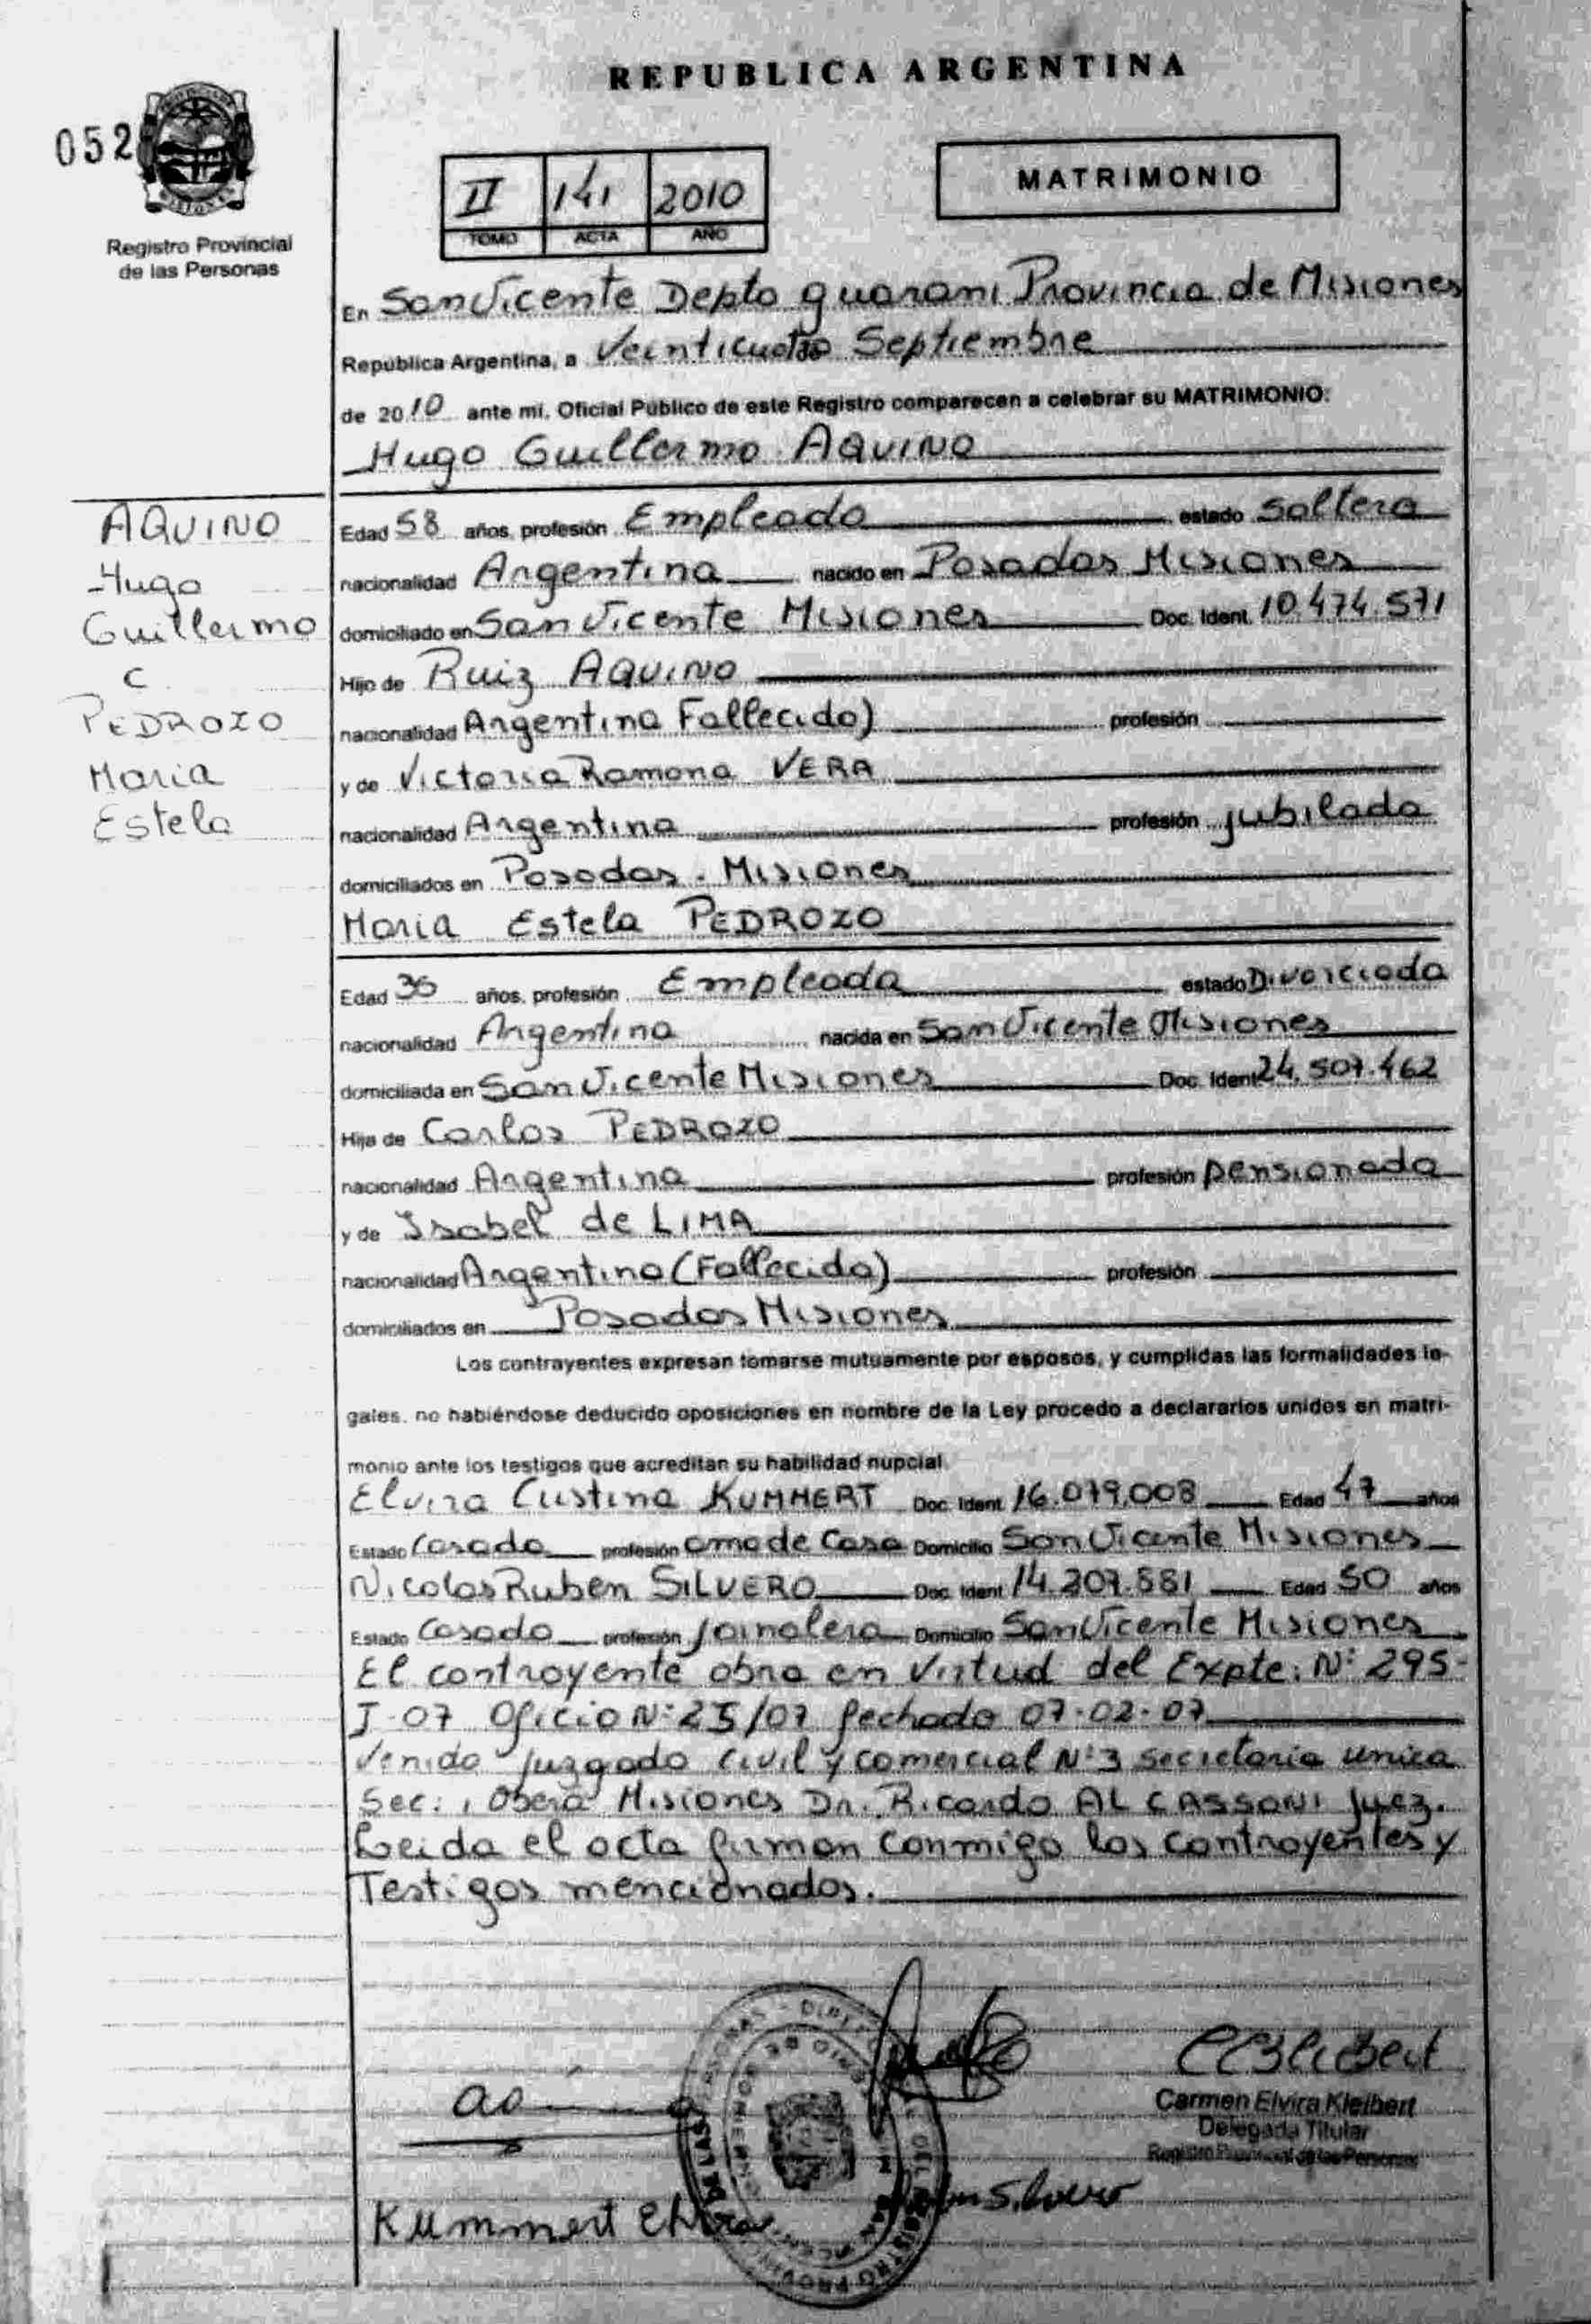 REPUBLICA ARGENTINA
052
MATRIMONIO
II 141 2010
TOMO ACTA AÑO
Registro Provincial
de las Personas
En San Vicente Depto guarani Provincia de Misiones
República Argentina, a Veinticuatro Septiembre
de 2010 ante mi, Oficial Público de este Registro comparecen a celebrar su MATRIMONIO:
Hugo Guillermo AQUINO
AQUINO
Hugo
Guillermo
C
PEDROZO
Maria
Estela
Edad 58 años, profesión Empleado estado Soltero
nacionalidad Argentina nacido en Posadas Misiones
domiciliado en San Vicente Misiones Doc. Ident. 10.474.571
Hijo de Ruiz AQUINO
nacionalidad Argentina Fallecido) profesión
y de Victoria Ramona VERA
nacionalidad Argentina profesión jubilada
domiciliados en Posadas. Misiones
Maria Estela PEDROZO
Edad años, profesión Empleada estado Divorciada
nacionalidad Argentina nacida en San Vicente Misiones
domiciliada en San Vicente Misiones Doc. Ident 24.507.462
Hija de Carlos PEDROZO
nacionalidad Argentina profesión pensionado
y de Isabel de LIMA
nacionalidad Argentina (Fallecida) profesión
domiciliados en Posadas Misiones
Los contrayentes expresan tomarse mutuamente por esposos, y cumplidas las formalidades le-
gales, no habiéndose deducido oposiciones en nombre de la Ley procedo a declararlos unidos en matri-
monio ante los testigos que acreditan su habilidad nupcial
Elvira Cristina KUMMERT Doc. Ident 16.079.008 Edad 47 años
Estado Casada profesión ama de Casa Domicilio San Vicente Misiones
Nicolas Ruben SILVERO Doc. Ident 14.207.881 Edad 50 años
Estado Casado profesión Jornalero Domicilio San Vicente Misiones
El contrayente obra en virtud del Expte: Nº 295-
J-07 Oficio Nº 25/07 fechado 07-02-07
Venido juzgado Civil y comercial Nº 3 secretaria unica
Sec: , Obera Misiones Dr. Ricardo AL CASSONI Juez.
Leida el acta firman conmigo los contrayentes y
Testigos mencionados.
Carmen Elvira Kleibert
Delegada Titular
Registro Provincial de las Personas
Kummert Elvira
Silvero